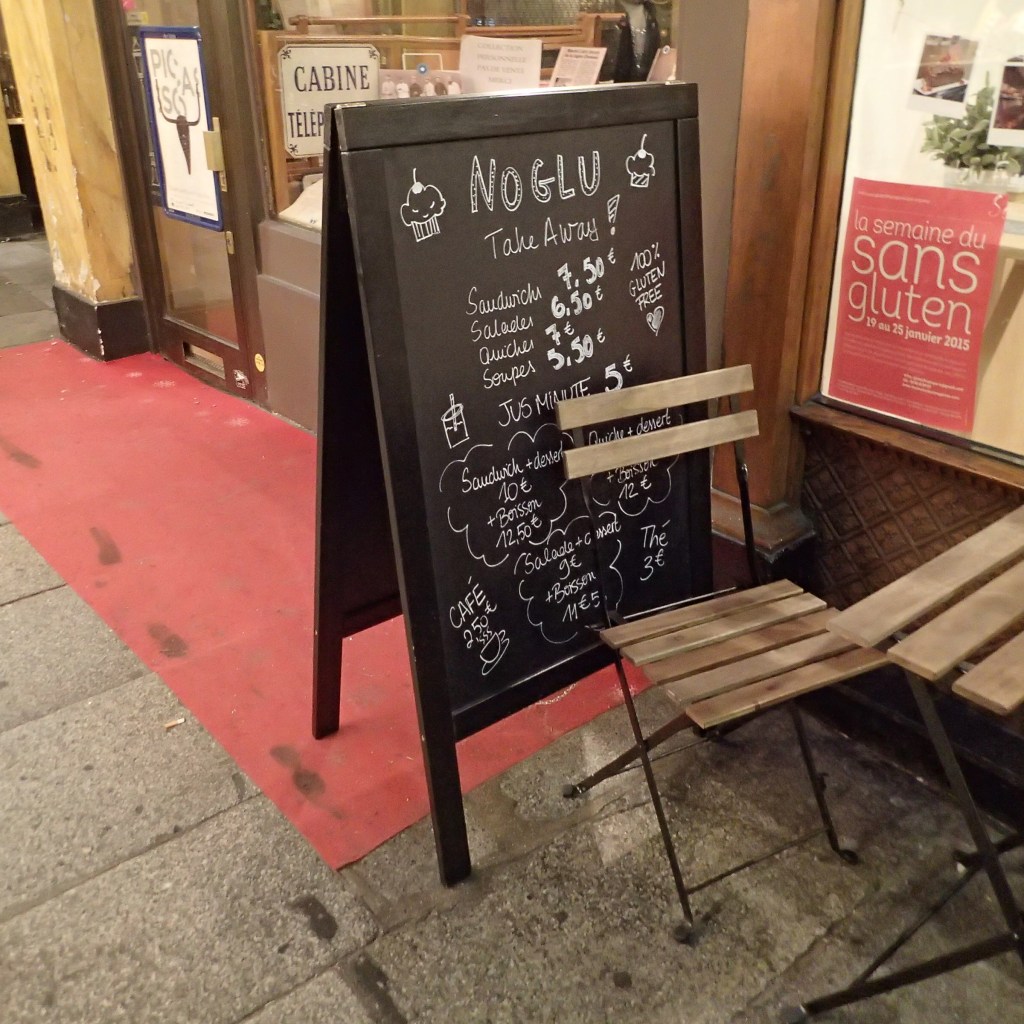 PICASSO
CABINE
COLLECTION
PERSONNELLE
PAS DE VENTE
MERCI
NOGLU
Take Away !
Sandwichs 7,50 €
Salades 6,50 €
Quiches 7 €
Soupes 5,50 €
100%
GLUTEN
FREE
JUS MINUTE 5 €
Sandwich + dessert
10 €
+ Boisson
12.50 €
Quiche + dessert
+ Boisson
12 €
Salade + dessert
9 €
+ Boisson
11 € 5
Thé
3 €
CAFÉ
2.50 €
la semaine du
sans
gluten
19 au 25 janvier 2015